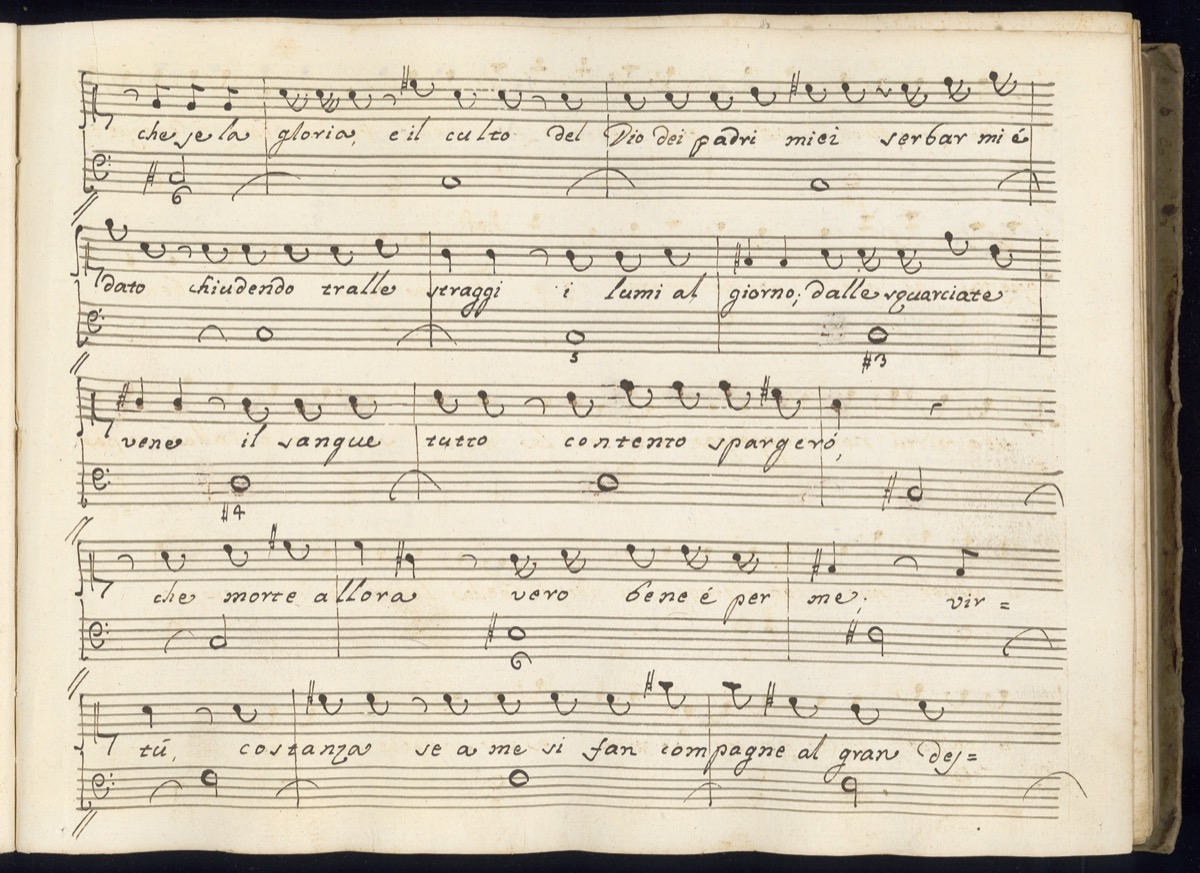 che se la gloria, e il culto del Dio dei padri miei serbar mi é
6
dato chiudendo tralle straggi i lumi al giorno; dalle squarciate
5 #3
vene il sangue tutto contento spargeró,
#4
che morte allora vero bene é per me; vir=
6
tú, costanza se a me si fan compagne al gran des=